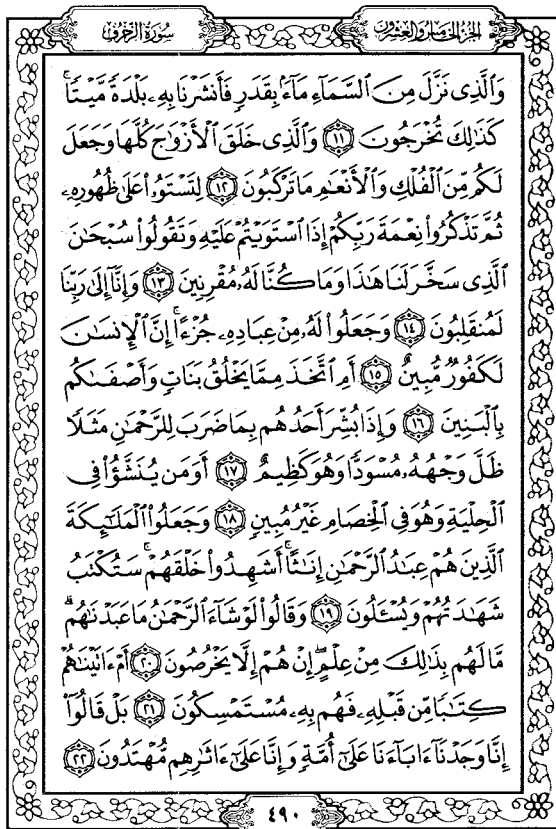 سُورَةُ الزُّخْرُفِ
الجُزْءُ الخَامِسُ وَالعِشْرُونَ
وَٱلَّذِى نَزَّلَ مِنَ ٱلسَّمَآءِ مَآءَۢ بِقَدَرٍ فَأَنشَرْنَا بِهِۦ بَلْدَةً مَّيْتًاۚ
كَذَٰلِكَ تُخْرَجُونَ ١١ وَٱلَّذِى خَلَقَ ٱلْأَزْوَٰجَ كُلَّهَا وَجَعَلَ
لَكُم مِّنَ ٱلْفُلْكِ وَٱلْأَنْعَٰمِ مَا تَرْكَبُونَ ١٢ لِتَسْتَوُۥا۟ عَلَىٰ ظُهُورِهِۦ
ثُمَّ تَذْكُرُوا۟ نِعْمَةَ رَبِّكُمْ إِذَا ٱسْتَوَيْتُمْ عَلَيْهِ وَتَقُولُوا۟ سُبْحَٰنَ
ٱلَّذِى سَخَّرَ لَنَا هَٰذَا وَمَا كُنَّا لَهُۥ مُقْرِنِينَ ١٣ وَإِنَّآ إِلَىٰ رَبِّنَا
لَمُنقَلِبُونَ ١٤ وَجَعَلُوا۟ لَهُۥ مِنْ عِبَادِهِۦ جُزْءًاۚ إِنَّ ٱلْإِنسَٰنَ
لَكَفُورٌ مُّبِينٌ ١٥ أَمِ ٱتَّخَذَ مِمَّا يَخْلُقُ بَنَاتٍ وَأَصْفَىٰكُم
بِٱلْبَنِينَ ١٦ وَإِذَا بُشِّرَ أَحَدُهُم بِمَا ضَرَبَ لِلرَّحْمَٰنِ مَثَلًا
ظَلَّ وَجْهُهُۥ مُسْوَدًّا وَهُوَ كَظِيمٌ ١٧ أَوَمَن يُنَشَّؤُا۟ فِى
ٱلْحِلْيَةِ وَهُوَ فِى ٱلْخِصَامِ غَيْرُ مُبِينٍ ١٨ وَجَعَلُوا۟ ٱلْمَلَٰٓئِكَةَ
ٱلَّذِينَ هُمْ عِبَٰدُ ٱلرَّحْمَٰنِ إِنَٰثًاۚ أَشَهِدُوا۟ خَلْقَهُمْۚ سَتُكْتَبُ
شَهَٰدَتُهُمْ وَيُسْـَٔلُونَ ١٩ وَقَالُوا۟ لَوْ شَآءَ ٱلرَّحْمَٰنُ مَا عَبَدْنَٰهُمۗ
مَّا لَهُم بِذَٰلِكَ مِنْ عِلْمٍۖ إِنْ هُمْ إِلَّا يَخْرُصُونَ ٢٠ أَمْ ءَاتَيْنَٰهُمْ
كِتَٰبًا مِّن قَبْلِهِۦ فَهُم بِهِۦ مُسْتَمْسِكُونَ ٢١ بَلْ قَالُوٓا۟
إِنَّا وَجَدْنَآ ءَابَآءَنَا عَلَىٰٓ أُمَّةٍ وَإِنَّا عَلَىٰٓ ءَاثَٰرِهِم مُّهْتَدُونَ ٢٢
٤٩٠